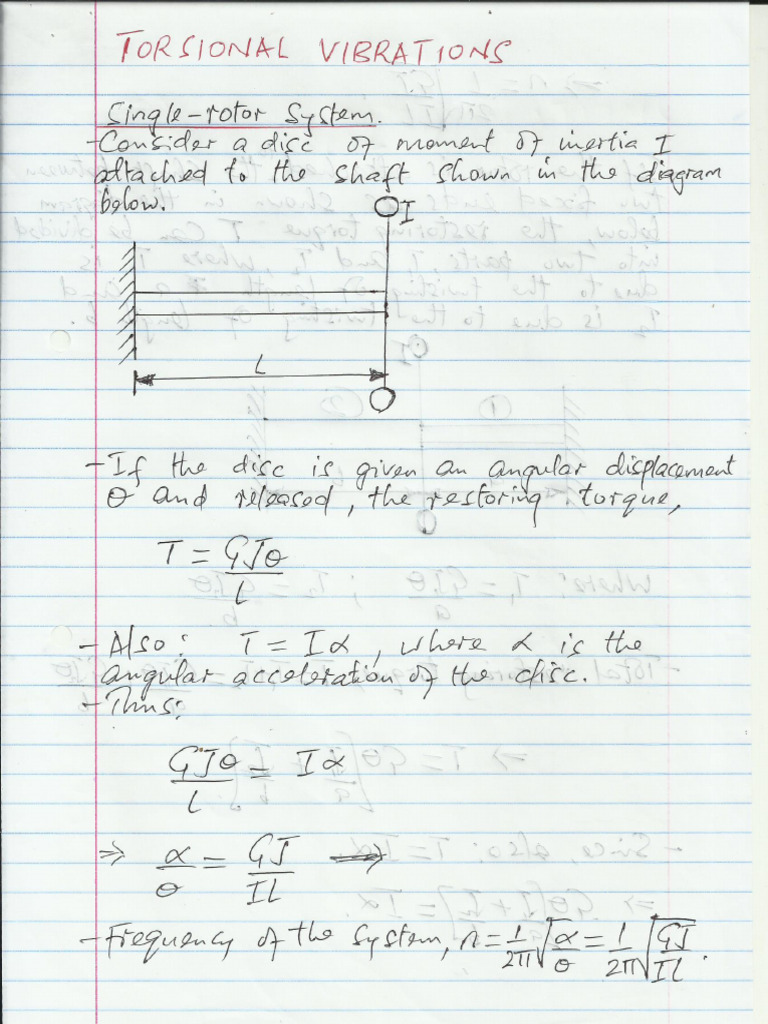 TORSIONAL VIBRATIONS
Single-rotor System.
- Consider a disc of moment of inertia I
attached to the shaft shown in the diagram
below.
I
L
- If the disc is given an angular displacement
θ and released, the restoring torque,
T = GJθ/L
- Also: T = Iα, where α is the
angular acceleration of the disc.
- Thus:
GJθ/L = Iα
⇒ α/θ = GJ/IL
- Frequency of the system, n = 1/2π √(α/θ) = 1/2π √(GJ/IL).